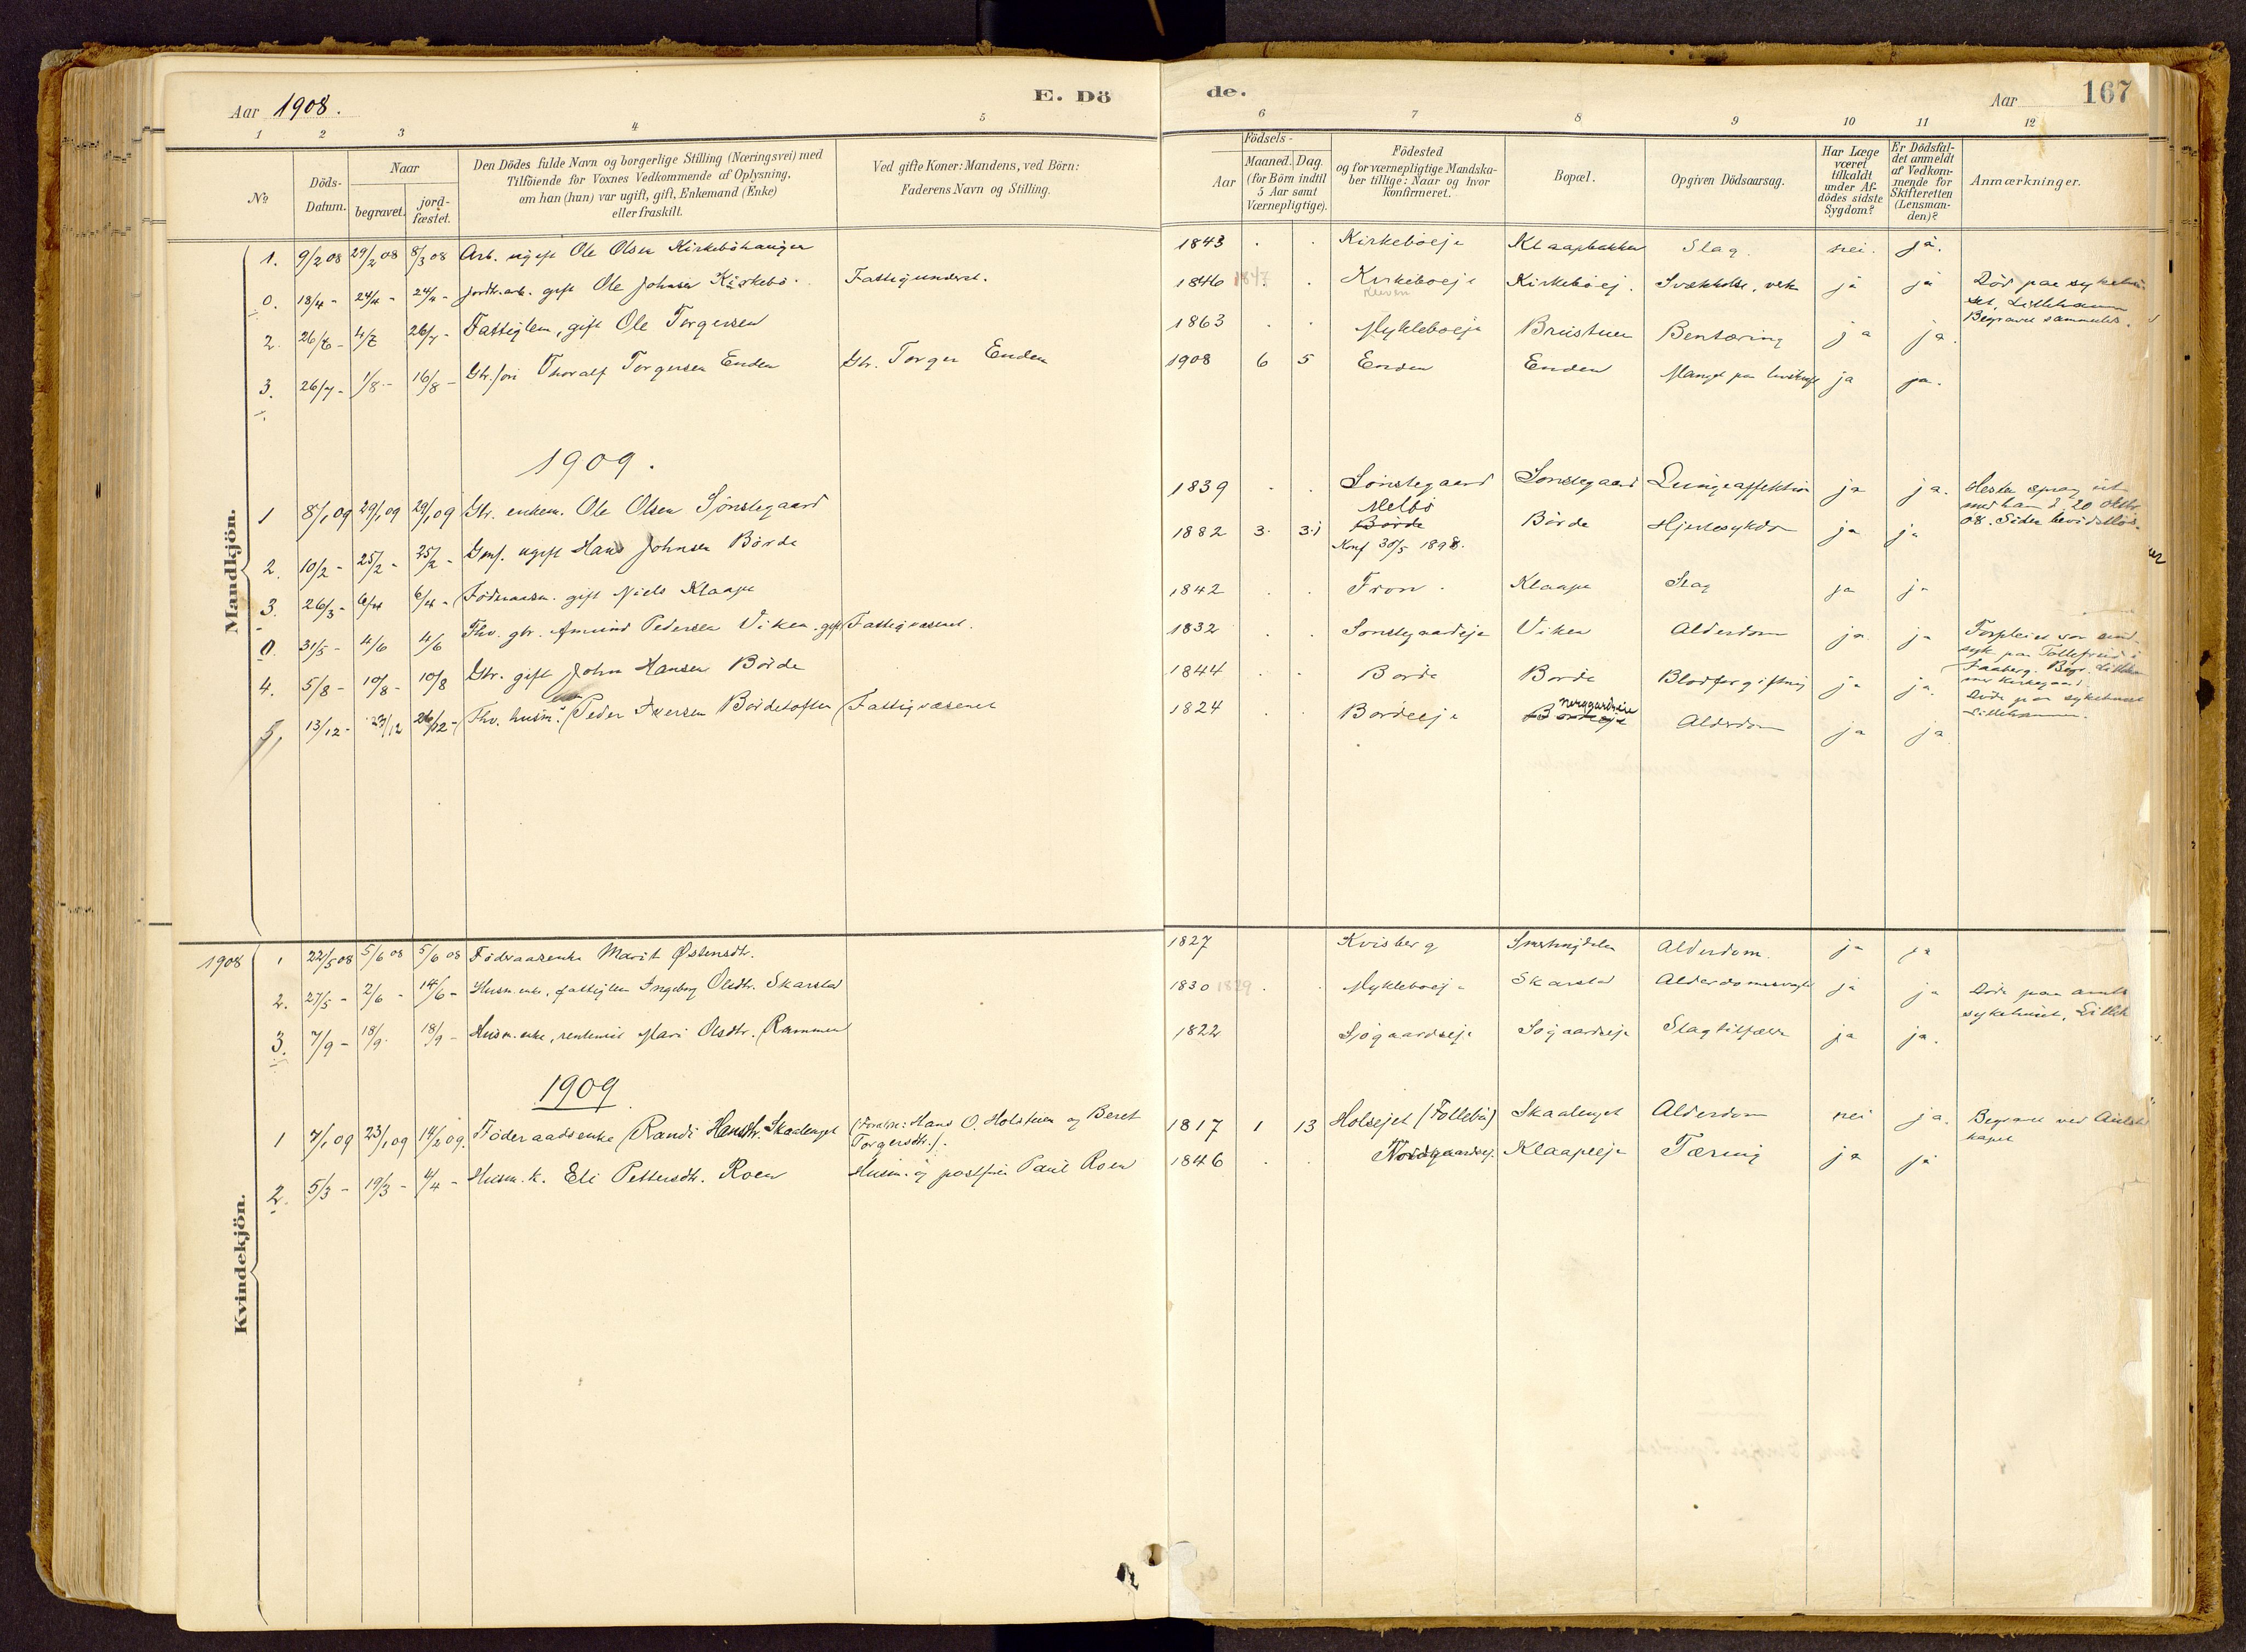 Aar 1908.
E. Dö
de.
Aar
167
1 2 3 4 5
6 7 8 9 10 11 12
No
Döds-
Datum.
Naar
begravet.
jord-
fæstet.
Den Dödes fulde Navn og borgerlige Stilling (Næringsvei) med
Tilföiende for Voxnes Vedkommende af Oplysning,
om han (hun) var ugift, gift, Enkemand (Enke)
eller fraskilt.
Ved gifte Koner: Mandens, ved Börn:
Faderens Navn og Stilling.
Födsels-
Aar
Maaned. Dag.
(for Börn indtil
5 Aar samt
Værnepligtige).
Födested
og for værnepligtige Mandska-
ber tillige: Naar og hvor
konfirmeret.
Bopæl.
Opgiven Dödsaarsag.
Har Læge
været
tilkaldt
under Af-
dödes sidste
Sygdom?
Er Dödsfal-
det anmeldt
af Vedkom-
mende for
Skifteretten
(Lensman-
den)?
Anmærkninger.
Mandkjön.
1. 9/2 08 29/2 08 8/3 08 Arb. ugift Ole Olsen Kirkeböhaugen 1843 Kirkeböeje Klaapbakken Slag nei. ja.
0. 18/4 - 24/4 - 24/4 - jordbr.arb. gift Ole Johnsen Kirkebö. 1846 1847 Kirkeböeje Kirkeböej. ja ja Död paa sykehu-
set, Lillehammer
Begravet sammesteds.
2. 26/6 - 4/7 26/7 - Fattiglem, gift Ole Torgersen 1863 Mykleböeje Brustuen Bentæring ja ja.
3. 26/7 - 1/8 - 16/8 - Gbr. søn Thoralf Torgersen Enden Gbr. Torger Enden 1908 6 5 Enden Enden Mangel paa livskraft ja ja.
1909.
1 8/1 09 29/1 09 29/1 09 Gbr. enkem. Ole Olsen Sjönstegaard 1839 Sönstegaard Sönstegaard Lungeaffektion ja ja. Hesten sprang ut
med ham d. 20 Oktbr.
08. Siden bevidstlös.
2. 10/2 - 25/2 - 25/2 - ugift Hans Johnsen Börde 1882 3. 31 Melbö
Börde
Konf 30/5 1898. Börde Hjertesykdom ja ja
3. 26/3 - 6/4 6/4 - Föderaasm. gift Niels Klaape 1842 Fron. Klaape Slag ja ja
0. 31/5 - 4/6 4/6 Fhv. gbr. Amund Pedersen Viken. gift Fattigvæsenet. 1832 Sönstegaardseje Viken Alderdom ja ja Forpleiet som sind-
syk paa
Faaberg. Begr. Lilleham-
mer kirkegaard.
4. 5/8 - 10/8 - 10/8 Gbr. gift John Hansen Börde 1844 Börde Börde Blodforgiftning ja ja. Döde paa sykehuset
Lillehammer.
5, 13/12 - 23/12 26/12 - Fhv. husm. Peder Iversen Bördetoften Fattigvæsenet 1824 Bördeeje Norggardseie
Bördeeje Alderdom ja ja
Kvindekjön.
1908 1 22/5 08 5/6 08 5/6 08 Föderaasenke Marit Østensdtr. 1827 Kvisberg Alderdom. ja ja
2. 27/5 - 2/6 - 14/6 - Husm. enke, fattiglem Ingeborg Olsdtr. Skarstad 1830 1829 Mykleböeje Skarstad Alderdomssvaghed ja ja Döde paa amts-
sykehuset, Lilleh
3. 7/9 - 18/9. 18/9 - Husm. enke, Mari Olsdtr. Rammen 1822 Sjögaardseje Sögaardseje Slagtilfælde ja ja.
1909
1 7/1 09 23/1 09 14/2 09. Föderaadsenke Randi Hansdtr. Skaalenget (Foreldre: Hans O. Holsteien og Beret
Torgersdtr.) 1817 1 13 Holsejet (Follebu) Skaalenget Alderdom nei ja. Begravet ved Aulestad
kapel
2. 5/3 - 19/3 - 4/4 - Husm. k. Eli Pettersdtr. Roen Husm. og postfører Paul Roen 1846 Nordgaardsej. Klaapeeje Tæring ja ja